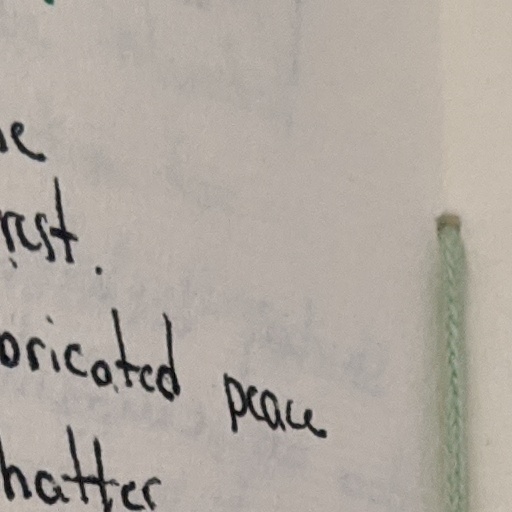 e
rest.
oricated peace
hatter